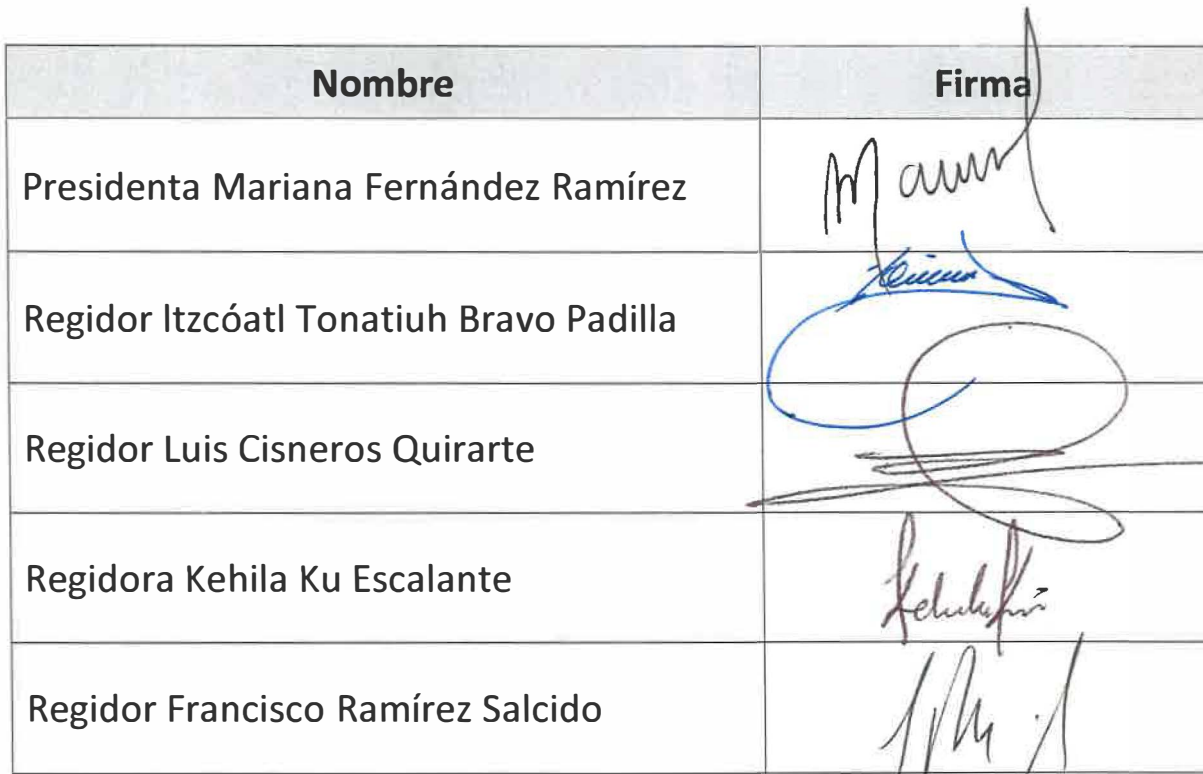 Nombre Firma
Presidenta Mariana Fernández Ramírez
Regidor Itzcóatl Tonatiuh Bravo Padilla
Regidor Luis Cisneros Quirarte
Regidora Kehila Ku Escalante
Regidor Francisco Ramírez Salcido